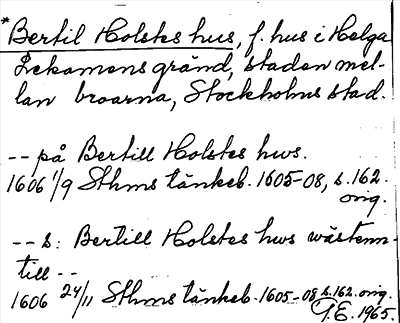 *Bertil Holstes hus, f. hus i Helga
Lekamens gränd, staden mel-
lan broarna, Stockholms stad.
-- på Bertill Holstes hws.
1606 1/9 Sthms tänkeb. 1605-08, s. 162.
orig.
-- s: Bertill Holstes hws wästenn-
till --
1606 24/11 Sthms tänkeb. 1605-08 s. 162. orig.
G.E. 1965.